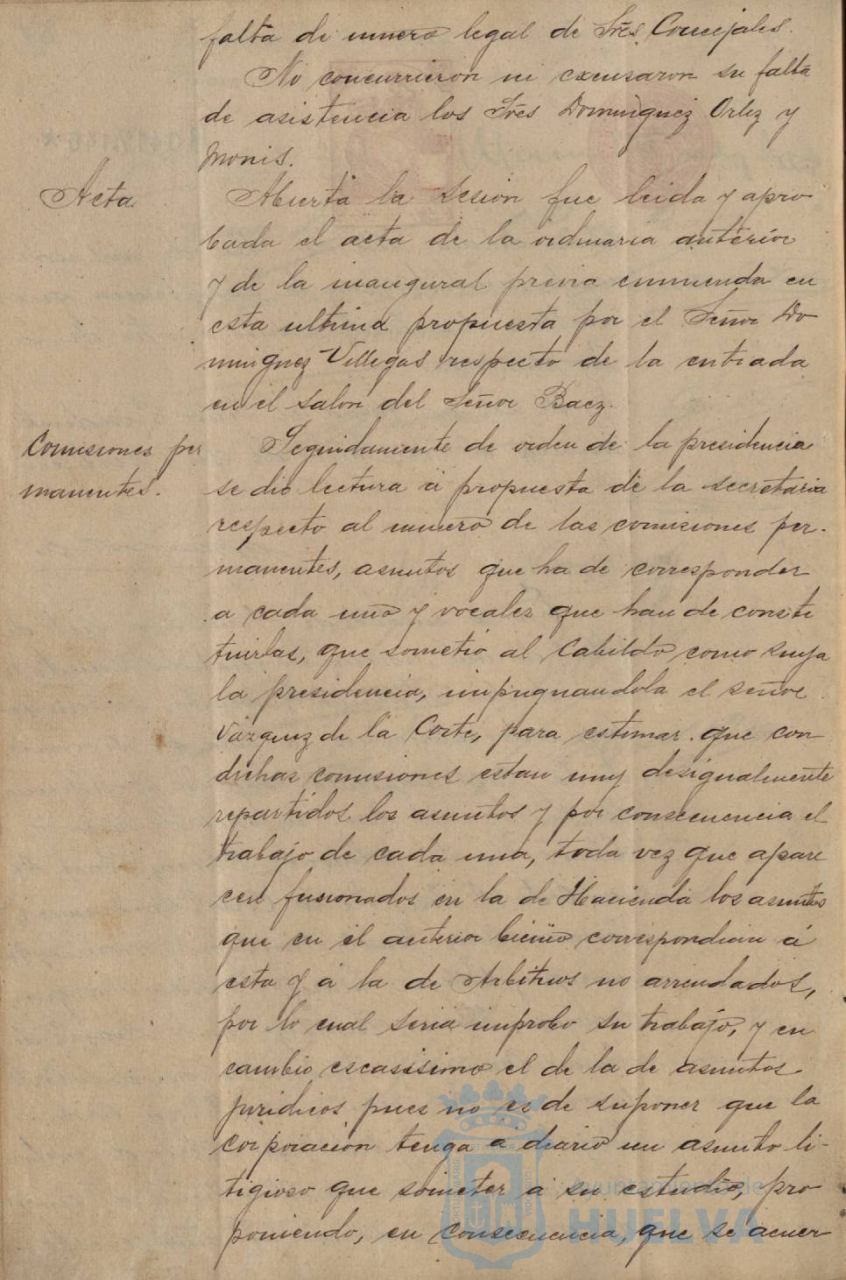 falta de numero legal de Sres. Concejales.
No concurrieron ni excusaron su falta
de asistencia los Sres Dominguez Ortiz y
Monis.
Acta
Abierta la sesion fue leida y apro
bada el acta de la ordinaria anterior
y de la inaugural previa enmienda en
esta ultima propuesta por el Señor Do
minguez Villegas respecto de la entrada
en el salon del Señor Baez.
Comisiones per
manentes.
Seguidamente de orden de la presidencia
se dio lectura á propuesta de la secretaria
respecto al numero de las comisiones per-
manentes, asuntos que ha de corresponder
a cada una y vocales que han de consti
tuirlas, que sometió al Cabildo como suya
la presidencia, impugnandola el señor
Vazquez de la Corte, para estimar que con
dichas comisiones estan muy desigualmente
repartidos los asuntos y por consecuencia el
trabajo de cada una, toda vez que apare
cen fusionados en la de Hacienda los asuntos
que en el anterior bienio correspondian á
esta y á la de Arbitrios no arrendados,
por lo cual seria improbo su trabajo, y en
cambio escasisimo el de la de asuntos
juridicos pues no es de suponer que la
corporacion tenga a diario un asunto li-
tigioso que someter a su estudio, pro
poniendo, en consecuencia, que se acuer
Ayuntamiento de
HUELVA